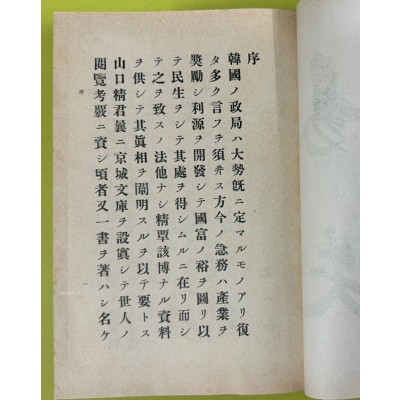 序
韓國ノ政局ハ大勢旣ニ定マルモノアリ復
タ多ク言フヲ須井ス方今ノ急務ハ產業ヲ
奬勵シ利源ヲ開發シテ國富ノ裕ヲ圖リ以
テ民生ヲシテ其處ヲ得シムルニ在リ而シ
テ之ヲ致スノ法他ナシ精覈該博ナル資料
ヲ供シテ其眞相ヲ闡明スルヲ以テ要トス
山口精君曩ニ京城文庫ヲ設寘シテ世人ノ
閱覽考覈ニ資シ頃者又一書ヲ著ハシ名ケ
序